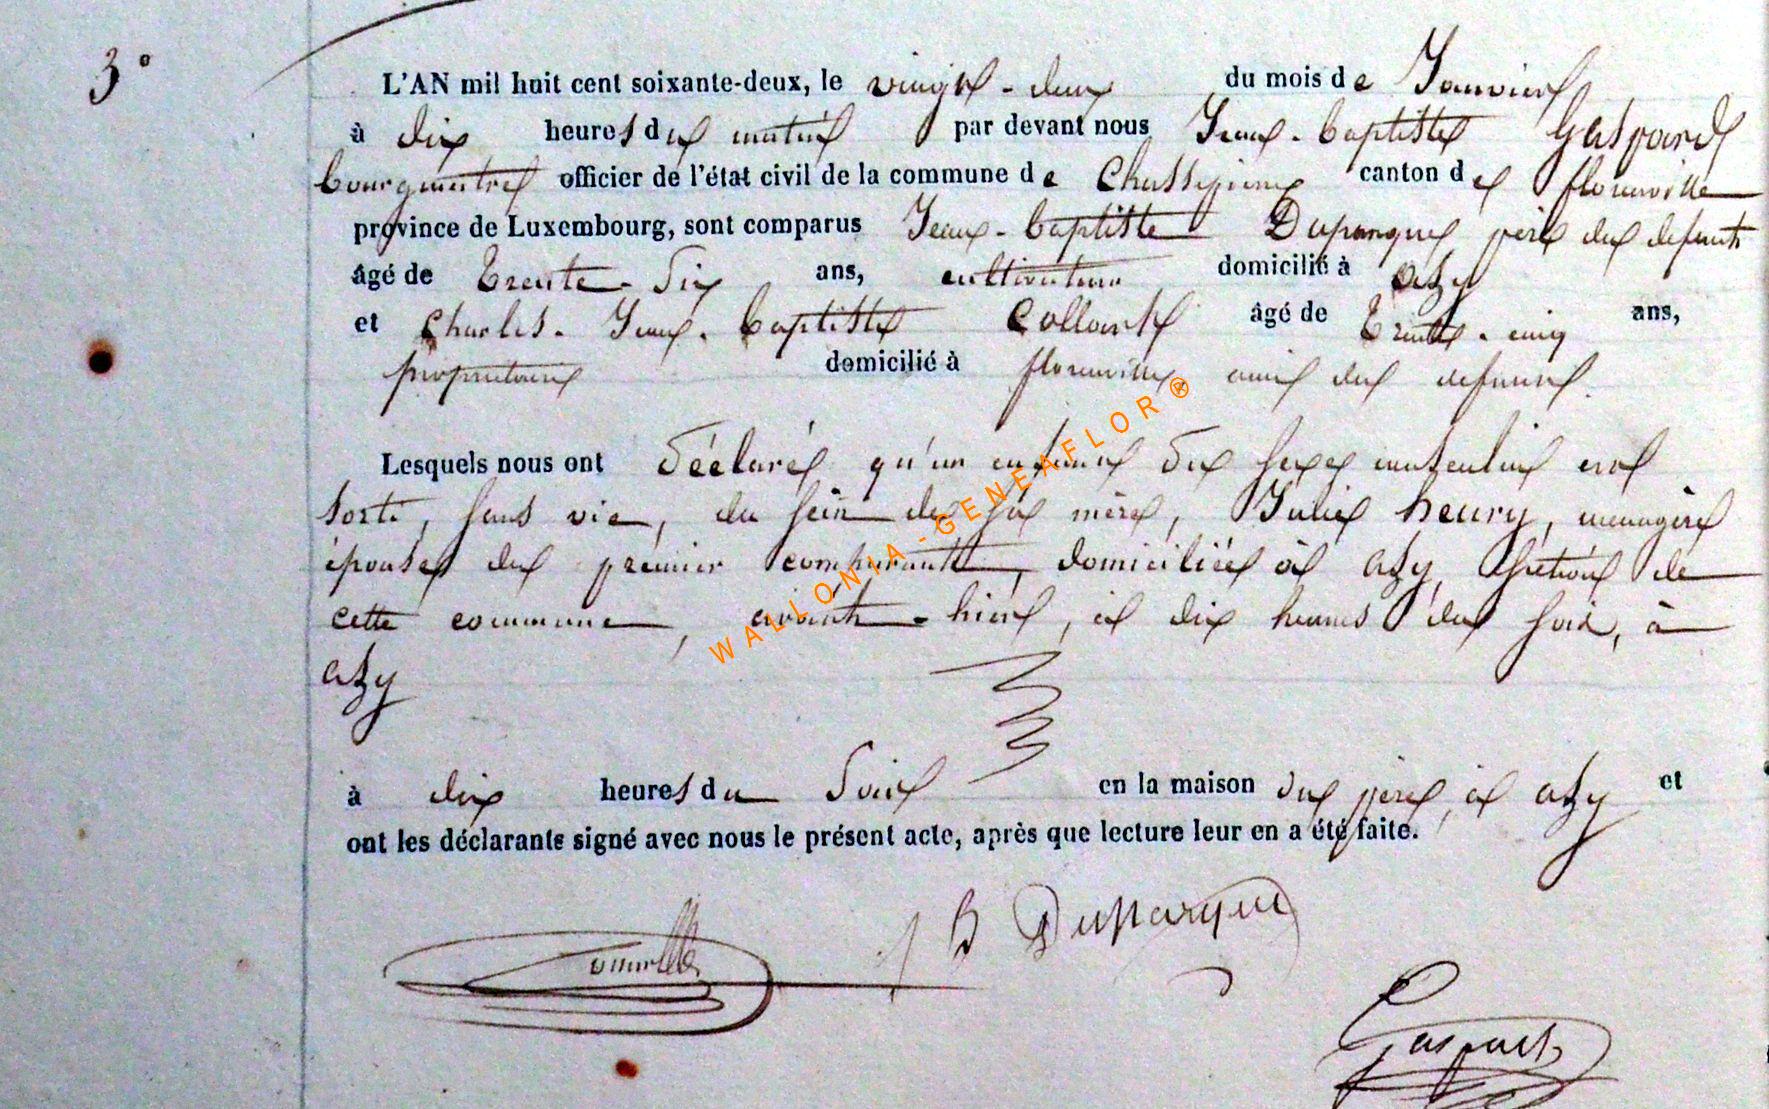 3°
L'AN mil huit cent soixante-deux, le vingt-deux du mois de Janvier
à dix heures du matin par devant nous Jean-baptiste Gaspard
bourgmestre officier de l'état civil de la commune de Chassepierre canton de florenville
province de Luxembourg, sont comparus Jean-baptiste Duparque père du défunt
âgé de trente-six ans, cultivateur domicilié à azy
et Charles-Jean-baptiste Collart âgé de trente-cinq ans,
propriétaire domicilié à florenville ami du defunt.
Lesquels nous ont déclaré qu'un enfant du sexe masculin est
sorti, sans vie, du sein de sa mère, Julie henry, menagère
épouse du premier comparant, domiciliée à azy, section de
cette commune, avant-hier, à dix heures du soir, à
azy
à dix heures du Soir en la maison du père, à azy et
ont les déclarants signé avec nous le présent acte, après que lecture leur en a été faite.
J B Duparque
Gaspard
WALLONIA-GENEAFLOR®